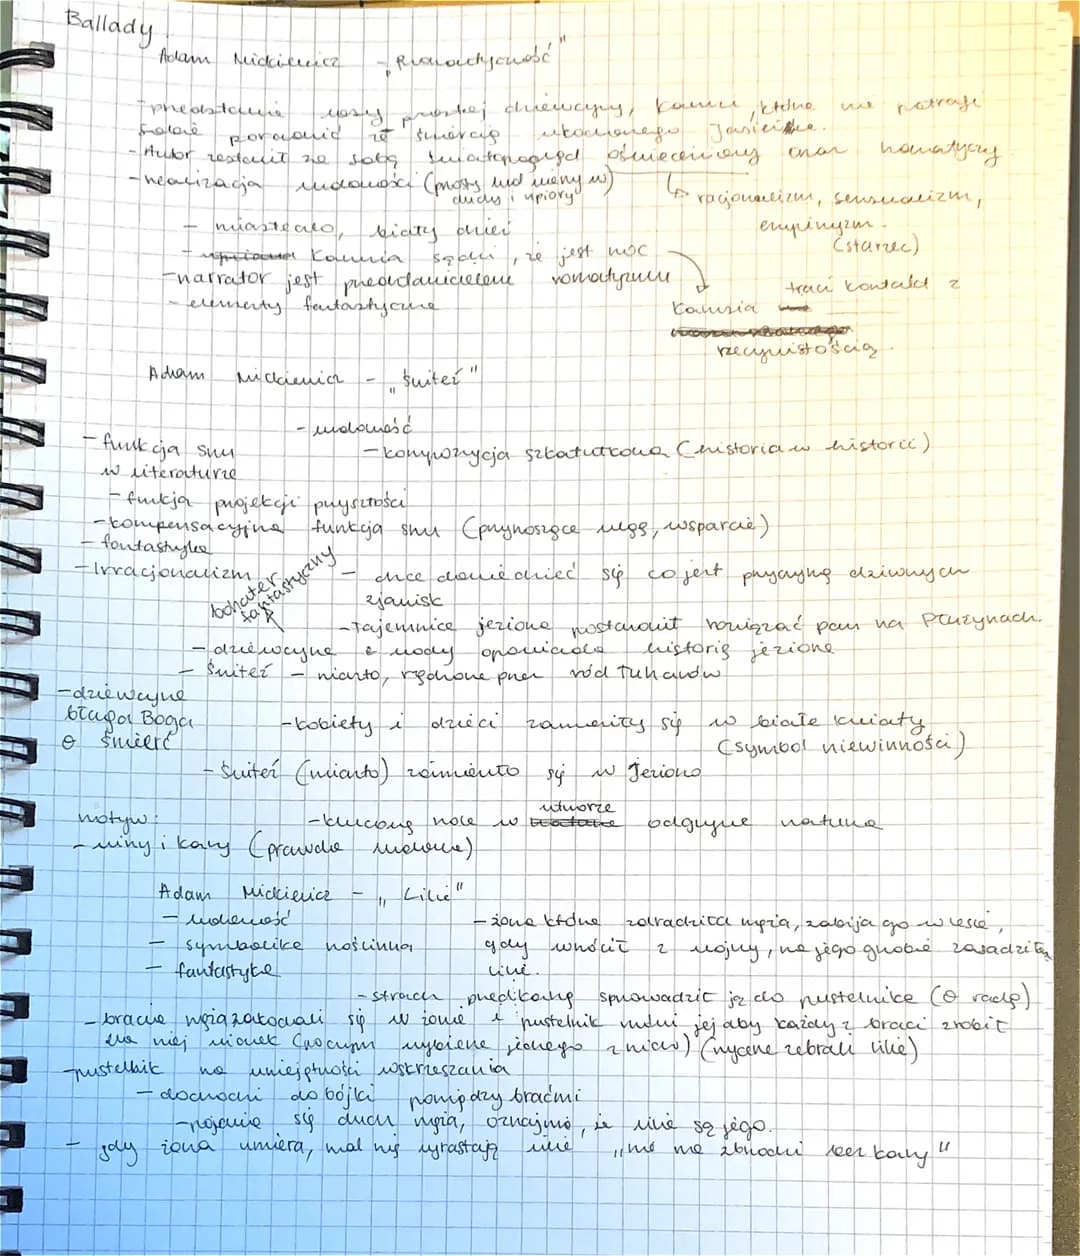 Ballady
Adam Mickiewicz - „Romantyczność"
- przedstawia losy prostej dziewczyny, Karusi, która nie potrafi
sobie poradzić ze śmiercią ukochanego Jasieńka.
- Autor zestawił ze sobą światopogląd oświeceniowy oraz romatyczny
- realizacja ludowości (prosty lud wierzy w duchy i upiory)
↳ racjonalizm, sensualizm,
empiryzm.
(starzec)
- miasteczko, biały dzień
- Karusia sądzi, że jest noc
- narrator jest przedstawicielem romatyzmu
- elementy fantastyczne
Karusia traci kontakt z
rzeczywistością.
Adam Mickiewicz - „Świteź"
- ludowość
- funkcja snu
w literaturze
- kompozycja szkatułkowa (historia w historii)
- funkcja projekcji przyszłości
- kompensacyjna funkcja snu (przynosząca ulgę, wsparcie)
- fantastyka
- Irracjonalizm
- chce dowiedzieć się co jest przyczyną dziwnych
zjawisk
bohater
fantastyczny
- Tajemnice jeziora postanowił rozwiązać pan na Płużynach.
- dziewczyna z wody opowiada historię jeziora
- Świteź - miasto, rządzone przez ród Tuhanów
- dziewczyna
błaga Boga
o śmierć
- kobiety i dzieci zamieniły się w białe kwiaty
(symbol niewinności)
- Świteź (miasto) zamieniło się w Jezioro
motyw:
- kluczową role w utworze odgrywa natura
- winy i kary (prawda ludowa)
Adam Mickiewicz - „Lilie"
- ludowość
- symbolika roślinna
- fantastyka
- żona która zdradziła męża, zabija go w lesie,
gdy wrócił z wojny, na jego grobie zasadziła
lilie.
- strach przed karą sprowadzić ją do pustelnika (o radę)
- bracia męża zakochali się w żonie i pustelnik mówi jej aby każdy z braci zrobił
dla niej wianek (poczym wybierze jednego z nich) (rycerze zebrali lilie)
- pustelnik ma umiejętności wskrzeszania
- dochodzi do bójki pomiędzy braćmi
- pojawia się duch męża, oznajmia, że lilie są jego.
- gdy żona umiera, nad nią wyrastają lilie „nie ma zbrodni bez kary"